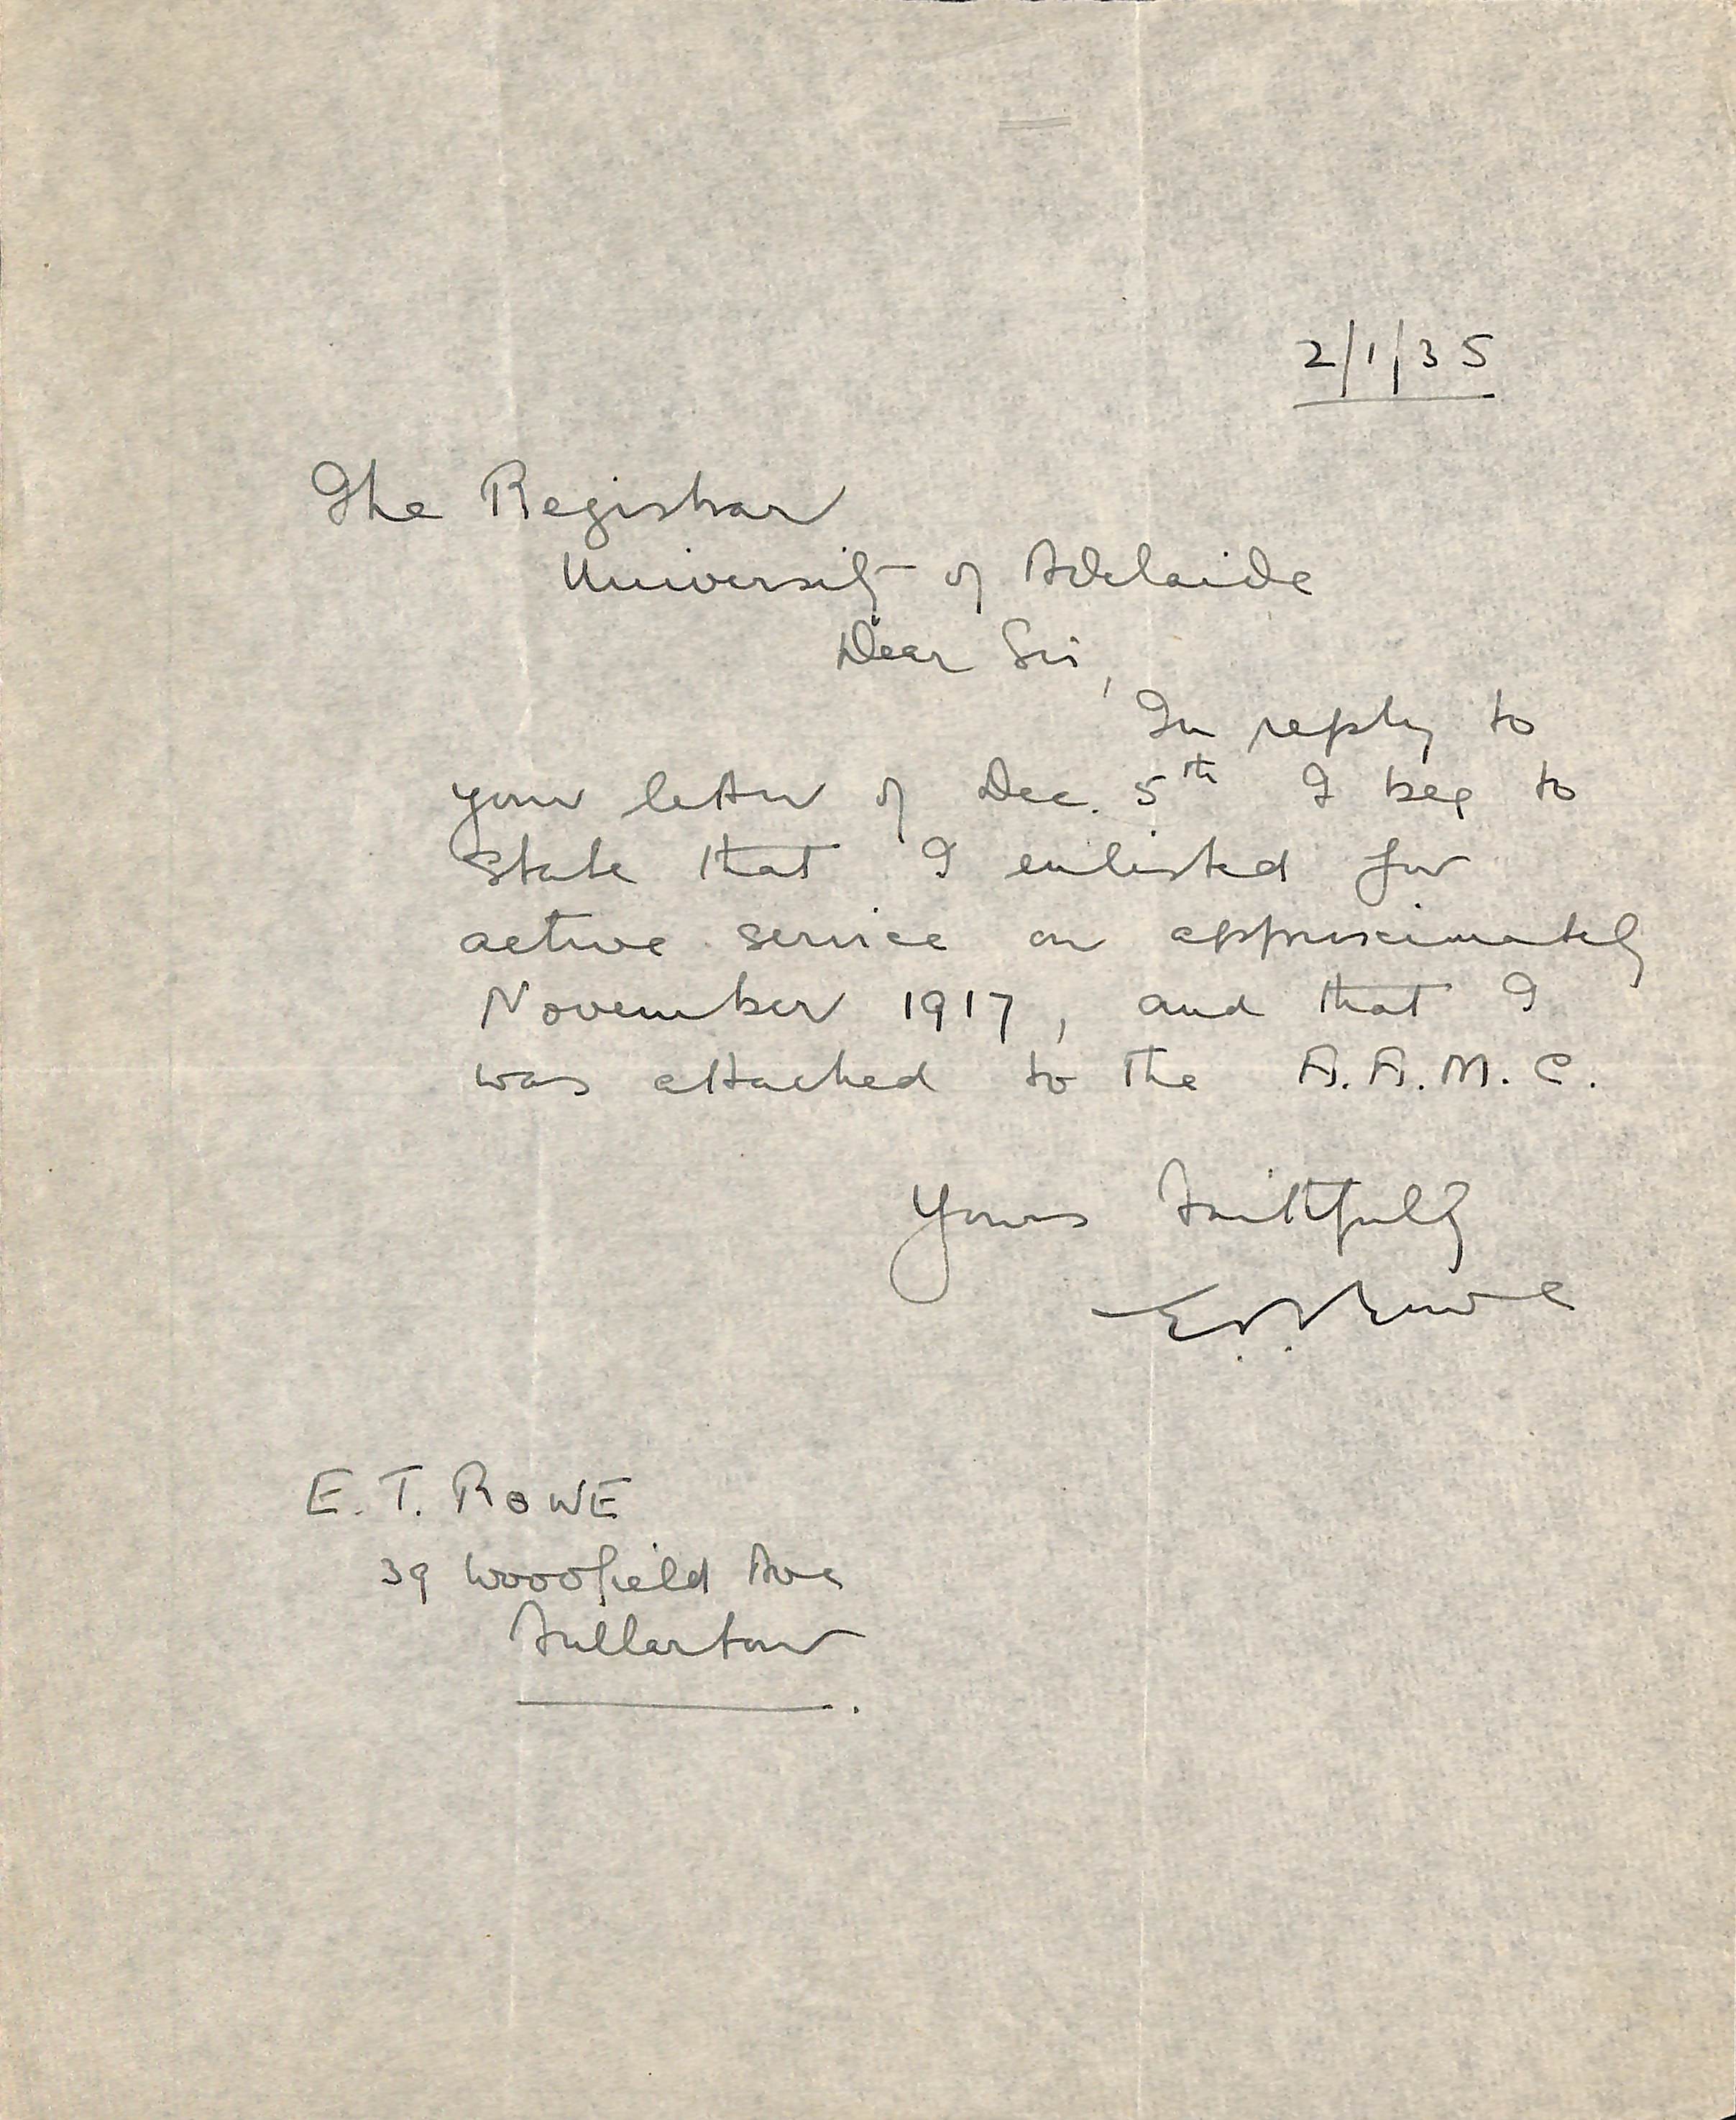 2/1/35
The Registrar
University of Adelaide
Dear Sir,
In reply to
your letter of Dec. 5th I beg to
state that I enlisted for
active service on approximately
November 1917, and that I
was attached to the A.A.M.C.
Yours Faithfully
E.T. Rowe
E. T. ROWE
39 Woodfield Ave
Fullarton.